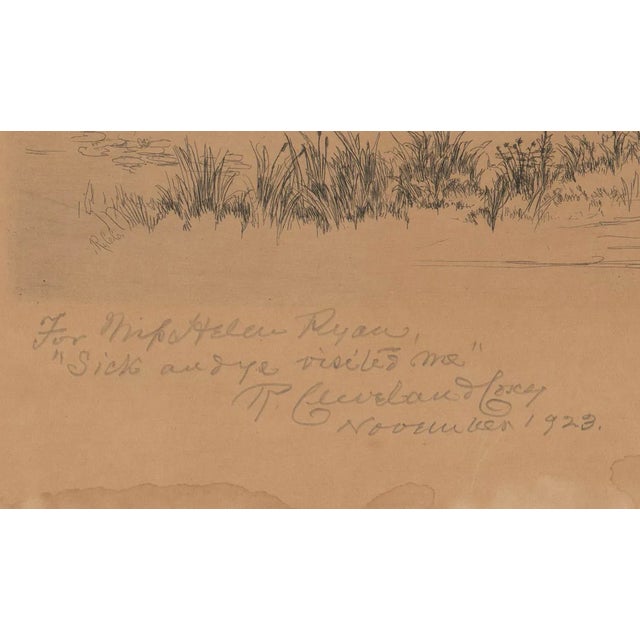 For Miss Helen Ryan,
"Sick and ye visited me"
R. Cleveland Coxe
November 1923.